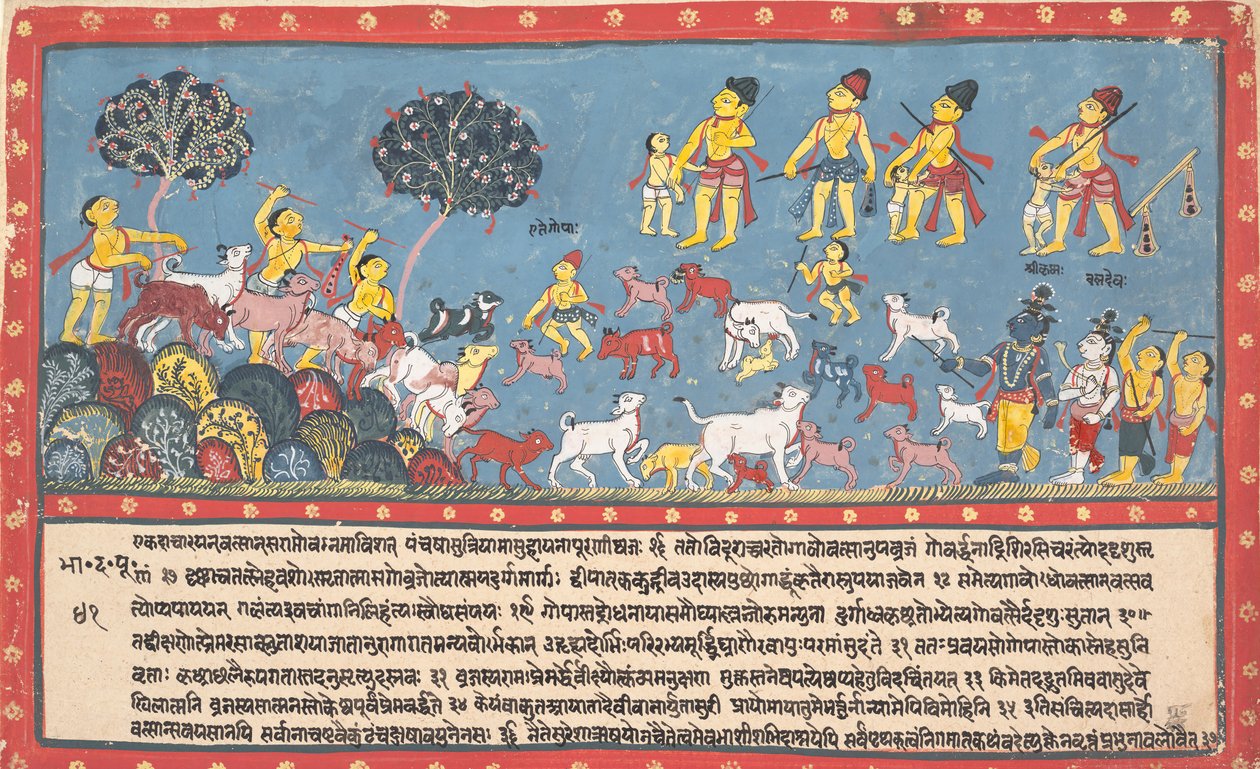 एतेगोपाः
श्रीकृष्णः
बलदेवः
एकदाचारयन्वत्सान्सरामोवनमाविशत् पंचषासुत्रियामासुहायनापूरणीष्वजः २६ ततोविदूराच्चरतोगावोवत्सानुपव्रजं गोवर्द्धनाद्रिशिरसिचरंत्योददृशुस्तृ
भा॰द॰पू॰ णं २७ दृष्ट्वाथतत्स्नेहवशोस्मृतात्मासगोव्रजोत्यात्मपदुर्गमार्गः द्विपात्ककुद्ग्रीवउदास्यपुच्छोगाद्धुंकृतैरास्नुपयाजवेन २८ समेत्यगावोधोवत्सान्वत्सव
४१ त्योप्यपाययन् गिलंत्यइवचांगानिलिहंत्यःस्वौधसंपयः २९ गोपास्तद्रोधनायासमौघ्यलज्जोरुमन्युना दुर्गाध्वकृच्छ्रतोभ्येत्यगोवत्सैर्ददृशुःसुतान् ३०॥
तदीक्षणोत्प्रेमरसाप्लुताशयाजातानुरागागतमन्यवोर्भकान् उदुह्यदोर्भिःपरिरभ्यमूर्द्धनिघ्राणैरवापुःपरमांमुदंते ३१ ततःप्रवयसोगोपास्तोकाश्लेषसुनि
वृताः कृच्छ्राच्छनैरपगतास्तदनुस्मृत्युदश्रवः ३२ व्रजस्यरामःप्रेमर्द्धेर्वीक्ष्यौत्कंठ्यमनुक्षणं मुक्तस्तनेष्वपत्येष्वप्यहेतुविदचिंतयत् ३३ किमेतदद्भुतमिववासुदेवे
खिलात्मनि व्रजस्यसात्मनस्तोकेष्वपूर्वंप्रेमवर्द्धते ३४ केयंवाकुतआयातादैवीवानार्युतासुरी प्रायोमायास्तुमेभर्तुर्नान्यामेपिविमोहिनी ३५ इतिसंचिंत्यदाशार्हो
वत्सान्सवयसानपि सर्वानाचष्टवैकुंठंचक्षुषावयुनेनसः ३६ नैतेसुरेशाऋषयोनचैतेत्वमेवभासीशभिदाश्रयेपि सर्वंपृथक्त्वंनिगमात्कथंवदेत्युक्तेनवृत्तंप्रभुणाबलोवैत् ३७